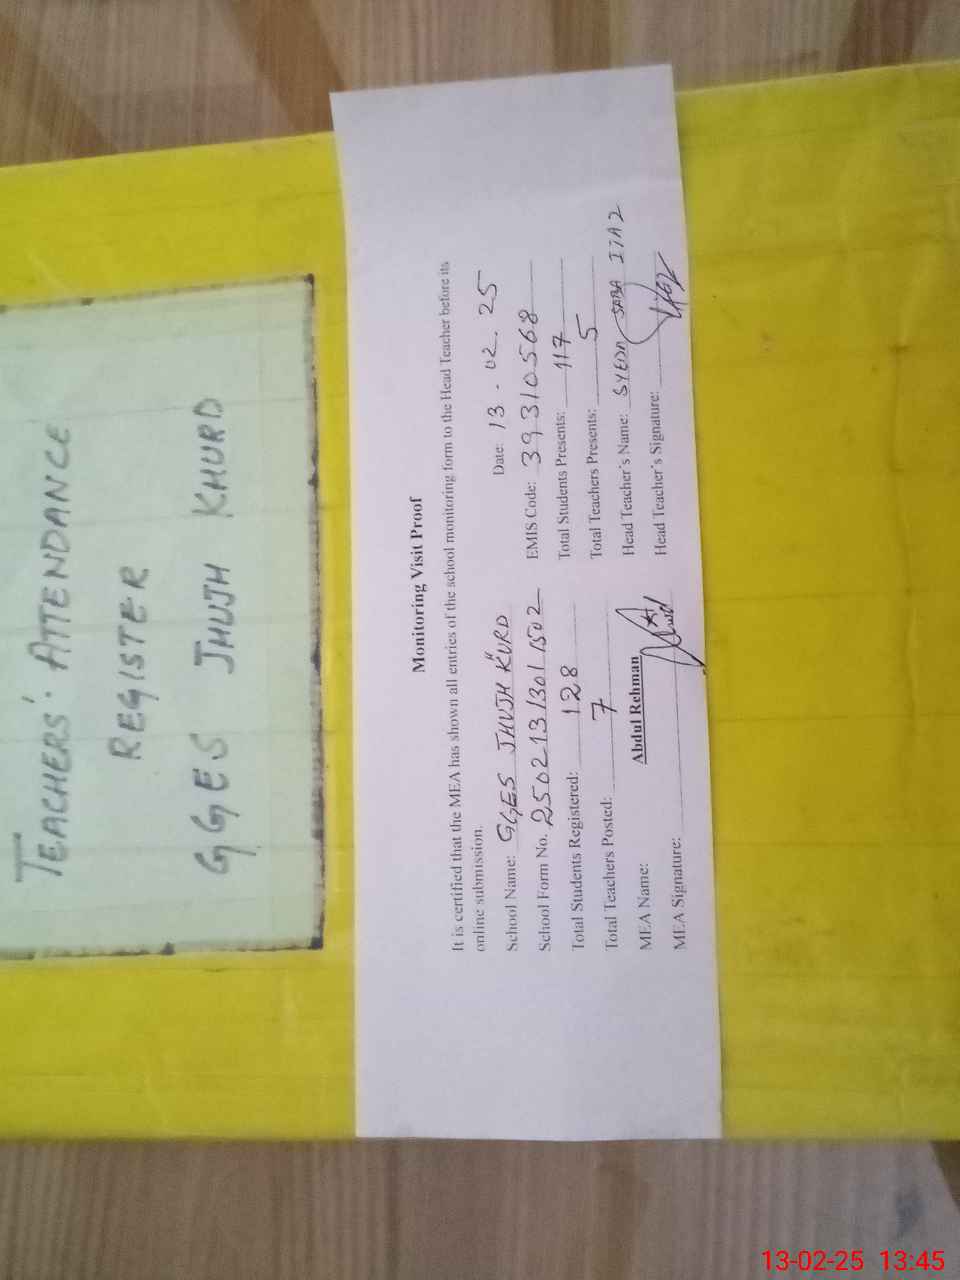 TEACHERS' ATTENDANCE
REGISTER
GGES JHUJH KHURD
Monitoring Visit Proof
It is certified that the MEA has shown all entries of the school monitoring form to the Head Teacher before its
online submission.
Date: 13.02.25
School Name: GGES JHUJH KHURD
School Form No. 2502131301 1502 EMIS Code: 39310568
Total Students Registered: 128 Total Students Presents: 117
Total Teachers Posted: 7 Total Teachers Presents: 5
MEA Name: Abdul Rehman Head Teacher's Name: SYEDA SABA IJAZ
MEA Signature: Head Teacher's Signature:
13-02-25 13:45